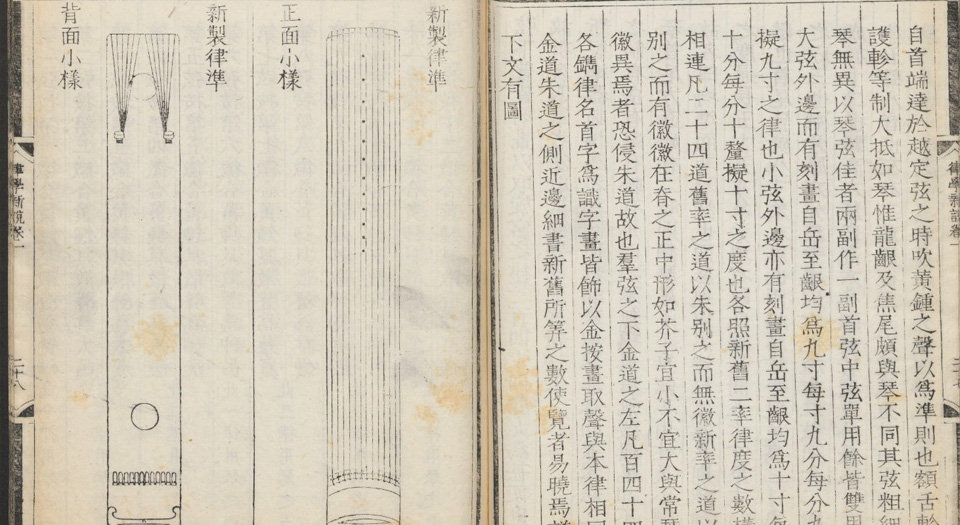 律學新說卷一
自首端達於越定弦之時吹黃鍾之聲以爲準則也額舌軫
護軫等制大抵如琴惟龍齦及焦尾頗與琴不同其弦粗細
琴無異以琴弦佳者兩副作一副首弦中弦單用餘皆雙用
大弦外邊而有刻畫自岳至齦均爲九寸每寸九分每分九
擬九寸之律也小弦外邊亦有刻畫自岳至齦均爲十寸每
十分每分十釐擬十寸之度也各照新舊二率律度之數橫
相連凡二十四道舊率之道以朱别之而無徽新率之道以
别之而有徽徽在脊之正中形如芥子宜小不宜大與常琴
徽異焉者恐侵朱道故也羣弦之下金道之左凡百四十四
各鐫律名首字爲識字畫皆飾以金按畫取聲與本律相同
金道朱道之側近邊細書新舊所筭之數使覽者易曉焉
下文有圖
新製律準
正面小樣
新製律準
背面小樣
律學新說卷一
二十八